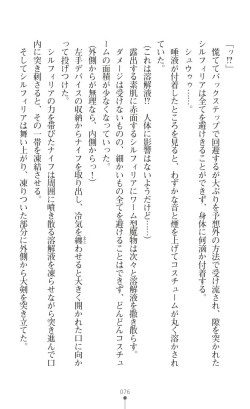 「っ!?」
慌ててバックステップで回避するが大ぶりを予想外の方法で受け流され、隙を突かれた
シルフィリアは全てを避けきることができず、身体に何滴か付着する。
シュウゥゥ……。
唾液が付着したところを見ると、わずかな音と煙を上げてコスチュームが丸く溶かされ
ていた。
(これは溶解液!? 人体に影響はないようだけど……)
露出する素肌に赤面するシルフィリアにワーム型魔物は次々と溶解液を撒き散らす。
ダメージは受けないものの、細かいもの全てを避けることはできず、どんどんコスチュ
ームの面積が少なくなっていった。
(外側からが無理なら、内側からっ!)
左手デバイスの収納からナイフを取り出し、冷気を纏わせると大きく開かれた口に向か
って投げつけた。
シルフィリアの力を帯びたナイフは周囲に噴き散る溶解液を凍らせながら突き進んで口
内に突き刺さると、その一帯を凍結させる。
そしてシルフィリアは舞い上がり、凍りついた部分に外側から大剣を突き立てた。
076